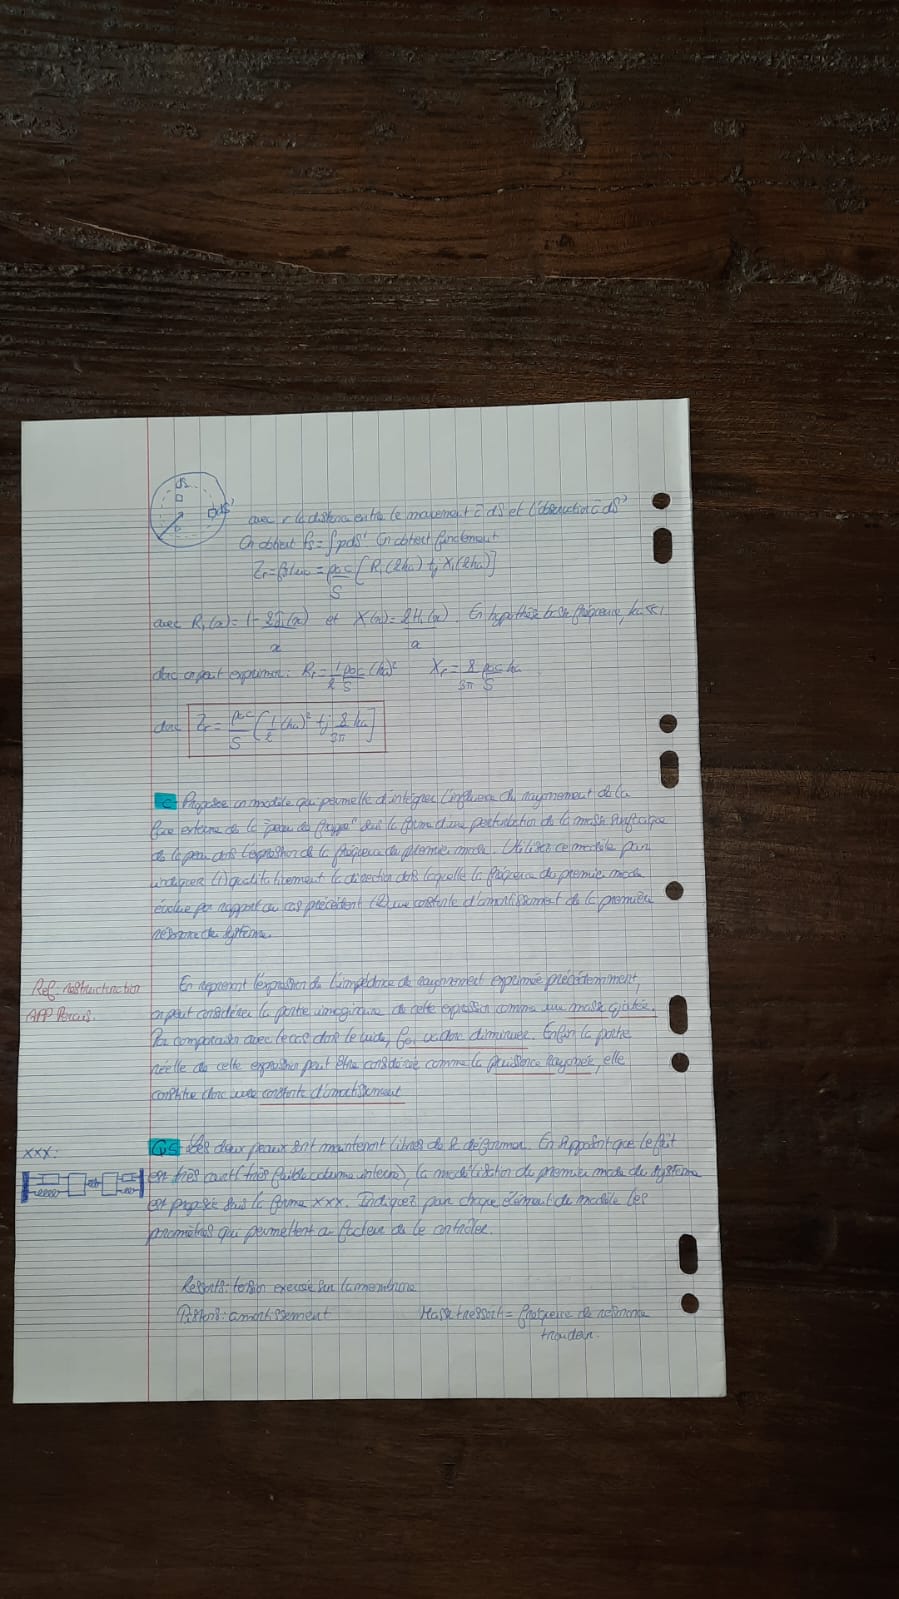 dS
dS'
avec r la distance entre le mouvement à dS et l'observation à dS'
On obtient fs = ∫ p dS' On obtient finalement
Zr = = ρ0c/S [R1(2ka) + j X1(2ka)]
avec R1(x) = 1 - 2J1(x)/x et X(x) = 2H1(x)/x. En hypothèse basse fréquence, ka << 1
donc on peut exprimer: Rr = 1/2 ρ0c/S (ka)² Xr = 8/3π ρ0c/S ka
donc Zr = ρ0c/S [1/2 (ka)² + j 8/3π ka]
c- Proposer un modèle qui permette d'intégrer l'influence du rayonnement de la
face externe de la "peau de frappe" sous la forme d'une perturbation de la masse surfacique
de la peau dans l'expression de la fréquence du premier mode. Utilisez ce modèle pour
indiquer (1) qualitativement la direction dans laquelle la fréquence du premier mode
évolue par rapport au cas précédent (2) une constante d'amortissement de la première
résonance du système.
Ref: restructuration
APP Percus.
En reprenant l'expression de l'impédance de rayonnement exprimée précédemment,
on peut considérer la partie imaginaire de cette expression comme une masse ajoutée.
Par comparaison avec le cas dans le vide, f01 va donc diminuer. Enfin la partie
réelle de cette expression peut être considérée comme la puissance rayonnée, elle
constitue donc une constante d'amortissement
XXX:
Q5 Les deux peaux sont maintenant libres de se déformer. En supposant que le fût
est très court (très faible volume interne), la modélisation du premier mode du système
est proposée sous la forme XXX. Indiquez pour chaque élément du modèle les
paramètres qui permettent au facteur de le contrôler.
Ressorts: tension exercée sur la membrane
Pistons: amortissement
Masse + ressort = fréquence de résonance